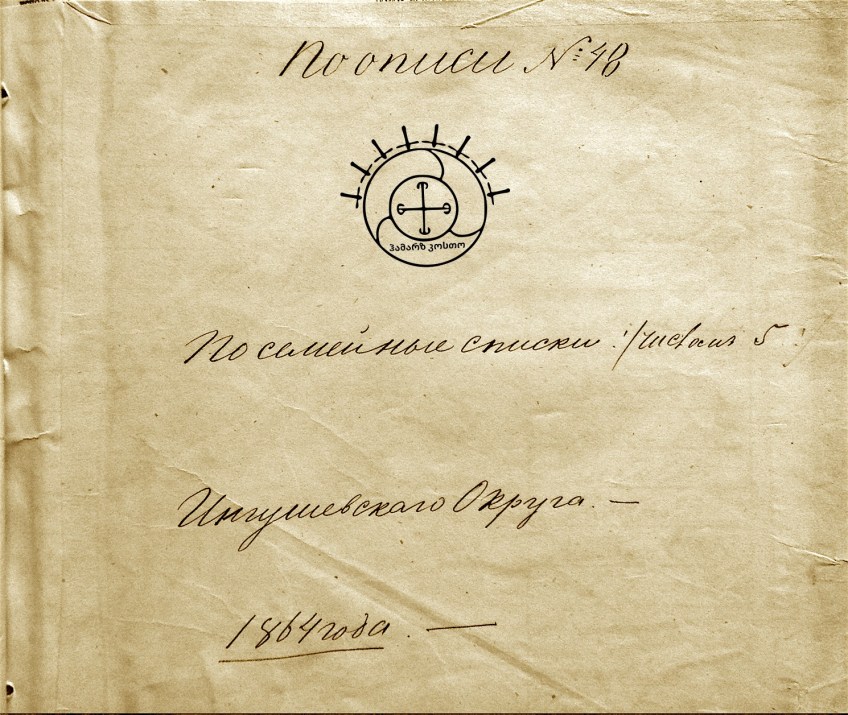 По описи №: 48
ჰამარზ კოსთო
Посемейные списки :/числомъ 5
Ингушевскаго Округа. —
1864 года. —